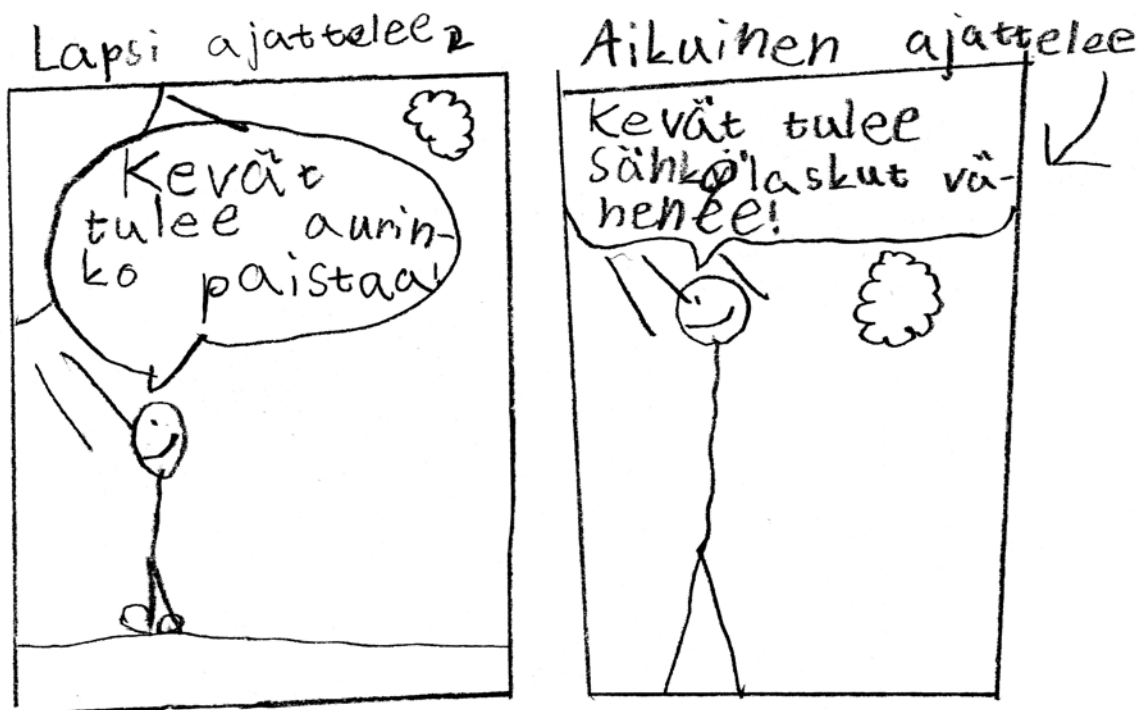 Lapsi ajattelee
Kevät
tulee aurin-
ko paistaa!
Aikuinen ajattelee
Kevät tulee
sähkölaskut vä-
henee!